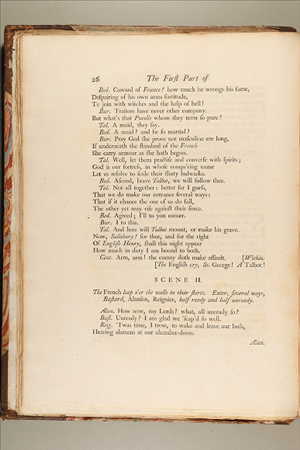 26 The First Part of
Bed. Coward of France! how much he wrongs his fame,
Despairing of his own arms fortitude,
To join with witches and the help of hell!
Bur. Traitors have never other company.
But what's that Pucelle whom they term so pure?
Tal. A maid, they say.
Bed. A maid? and be so martial?
Bur. Pray God she prove not masculine ere long,
If underneath the standard of the French
She carry armour as she hath begun.
Tal. Well, let them practise and converse with spirits;
God is our fortress, in whose conqu'ring name
Let us resolve to scale their flinty bulwarks.
Bed. Ascend, brave Talbot, we will follow thee.
Tal. Not all together: better far I guess,
That we do make our entrance several ways:
That if it chance the one of us do fail,
The other yet may rise against their force.
Bed. Agreed; I'll to yon corner.
Bur. I to this.
Tal. And here will Talbot mount, or make his grave.
Now, Salisbury! for thee, and for the right
Of English Henry, shall this night appear
How much in duty I am bound to both.
Cent. Arm, arm! the enemy doth make assault. [Within.
[The English cry, St. George! A Talbot!
SCENE II.
The French leap o'er the walls in their shirts. Enter, several ways,
Bastard, Alanson, Reignier, half ready and half unready.
Alan. How now, my Lords? what, all unready so?
Bast. Unready? I am glad we 'scap'd so well.
Reig. 'Twas time, I trow, to wake and leave our beds,
Hearing alarums at our chamber-doors.
Alan.